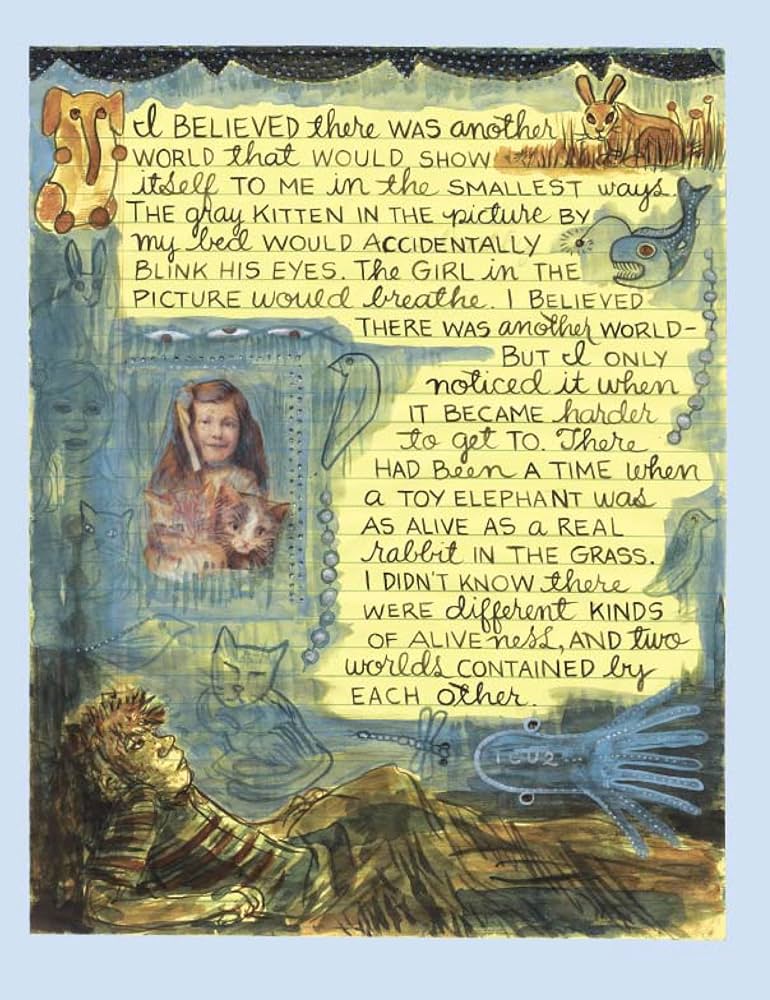 I BELIEVED there WAS another
WORLD that WOULD SHOW
itself TO ME in the SMALLEST ways.
THE gray KITTEN IN THE picture BY
my bed WOULD ACCIDENTALLY
BLINK HIS EYES. The GIRL in THE
PICTURE would breathe. I BELIEVED
THERE WAS another WORLD-
BUT I ONLY
noticed it when
IT BECAME harder
to get TO. There
HAD Been A TIME when
a TOY ELEPHANT was
AS ALIVE AS a REAL
rabbit IN THE GRASS.
I DIDN'T KNOW there
WERE different KINDS
OF ALIVEness, AND two
worlds CONTAINED by
EACH Other.
ICU2